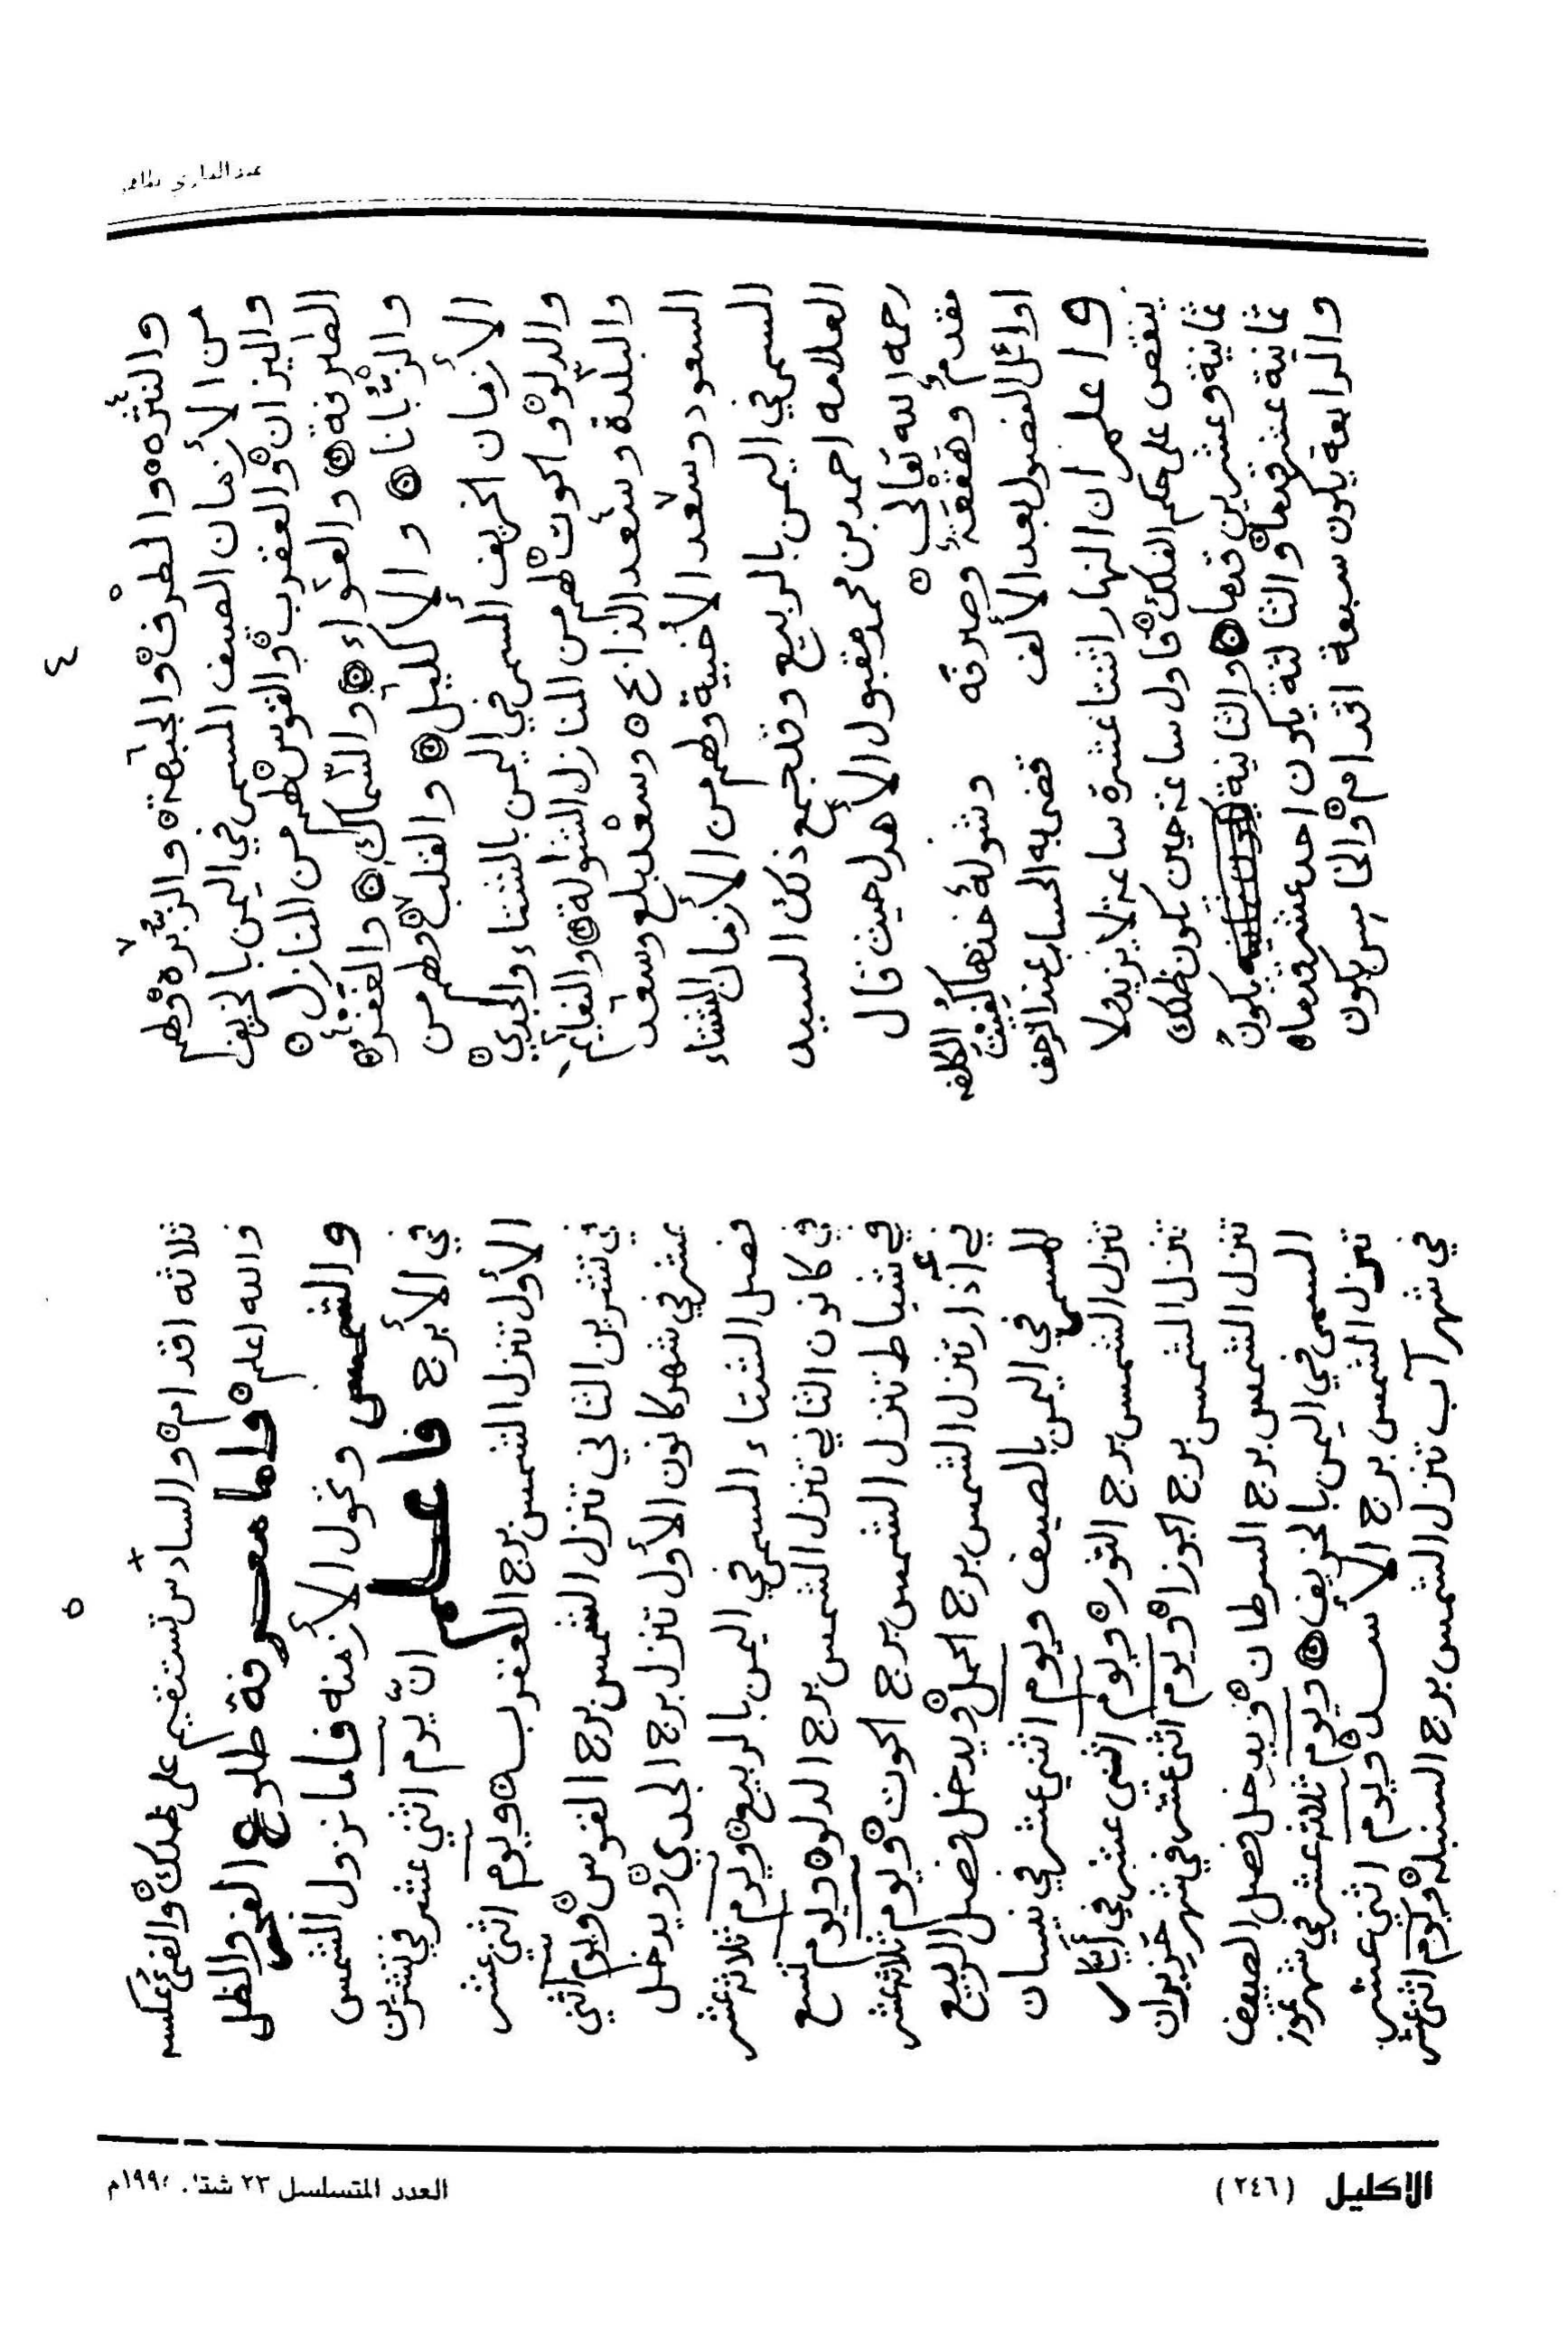 ٤
والنثره والطرف والجبهة والزبره وظهر
من الأزمان الصيف المسمى في اليمن بالخريف
والميزان والعقرب والقوس ولهم من المنازل
الصرفة والعواء والسماك والغفر
والزبانا والاكليل والقلب ولهم من
الأزمان الخريف المسمى في اليمن بالشتاء والجدي
والدلو والحوت لهم من المنازل الشولة والنعايم
والبلدة وسعد الذابح وسعد بلع وسعد
السعود وسعد الأخبية ولهم من الأزمان الشتاء
المسمى في اليمن بالربيع وقد جمع ذلك السيد
العلامه احمد بن محمد مقبول الأهدل حيث قال
رحمه الله تعالى
مقدم وهقعة وصرفه وشولة خذها كفيت الكلفه
اوائل الفصول بعد الألف
واعلم ان النهار اثنتا عشرة ساعة لا يزيد ولا
ينقص على حكم الفلك فاول ساعة حين يكون ظلك
ثمانية وعشرين قدما والثانية يكون
ثمانية عشر قدما والثالثة يكون احد عشر قدما
والرابعة يكون سبعة اقدام والخامس يكون
٥
ثلاثه اقدام والسادس تستقيم على ظلك والفئ عكسه
والله اعلم واما معرفة طلوع الفجر والظل
والشمس وتحول الأزمنه فاما نزول الشمس
في الأبرج فاعلم انّ يوم اثني عشر في تشرين
الأول تنزل الشمس برج العقرب ويوم اثني عشر
في تشرين الثاني تنزل الشمس برج القوس ويوم اثني
عشر في شهر كانون الأول تنزل برج الجدي ويدخل
فصل الشتاء المسمى في اليمن بالربيع ويوم ثلاثه عشر
في كانون الثاني تنزل الشمس برج الدلو ويوم تسع
في شباط تنزل الشمس برج الحوت ويوم ثلاثه عشر
في آذار تنزل الشمس برج الحمل ويدخل فصل الربيع
المسمى في اليمن بالصيف ويوم اثني عشر في نيسان
تنزل الشمس برج الثور ويوم اثني عشر في أيار
تنزل الشمس برج الجوزا ويوم اثني عشر في شهر حزيران
تنزل الشمس برج السرطان ويدخل فصل الصيف
المسمى في اليمن بالخريف ويوم ثلثه عشر في شهر تموز
تنزل الشمس برج الأسد ويوم اثني عشر
في شهر آب تنزل الشمس برج السنبله ويوم اثني عشر
الاكليل (٢٤٦) العدد المتسلسل ٢٣ شتاء